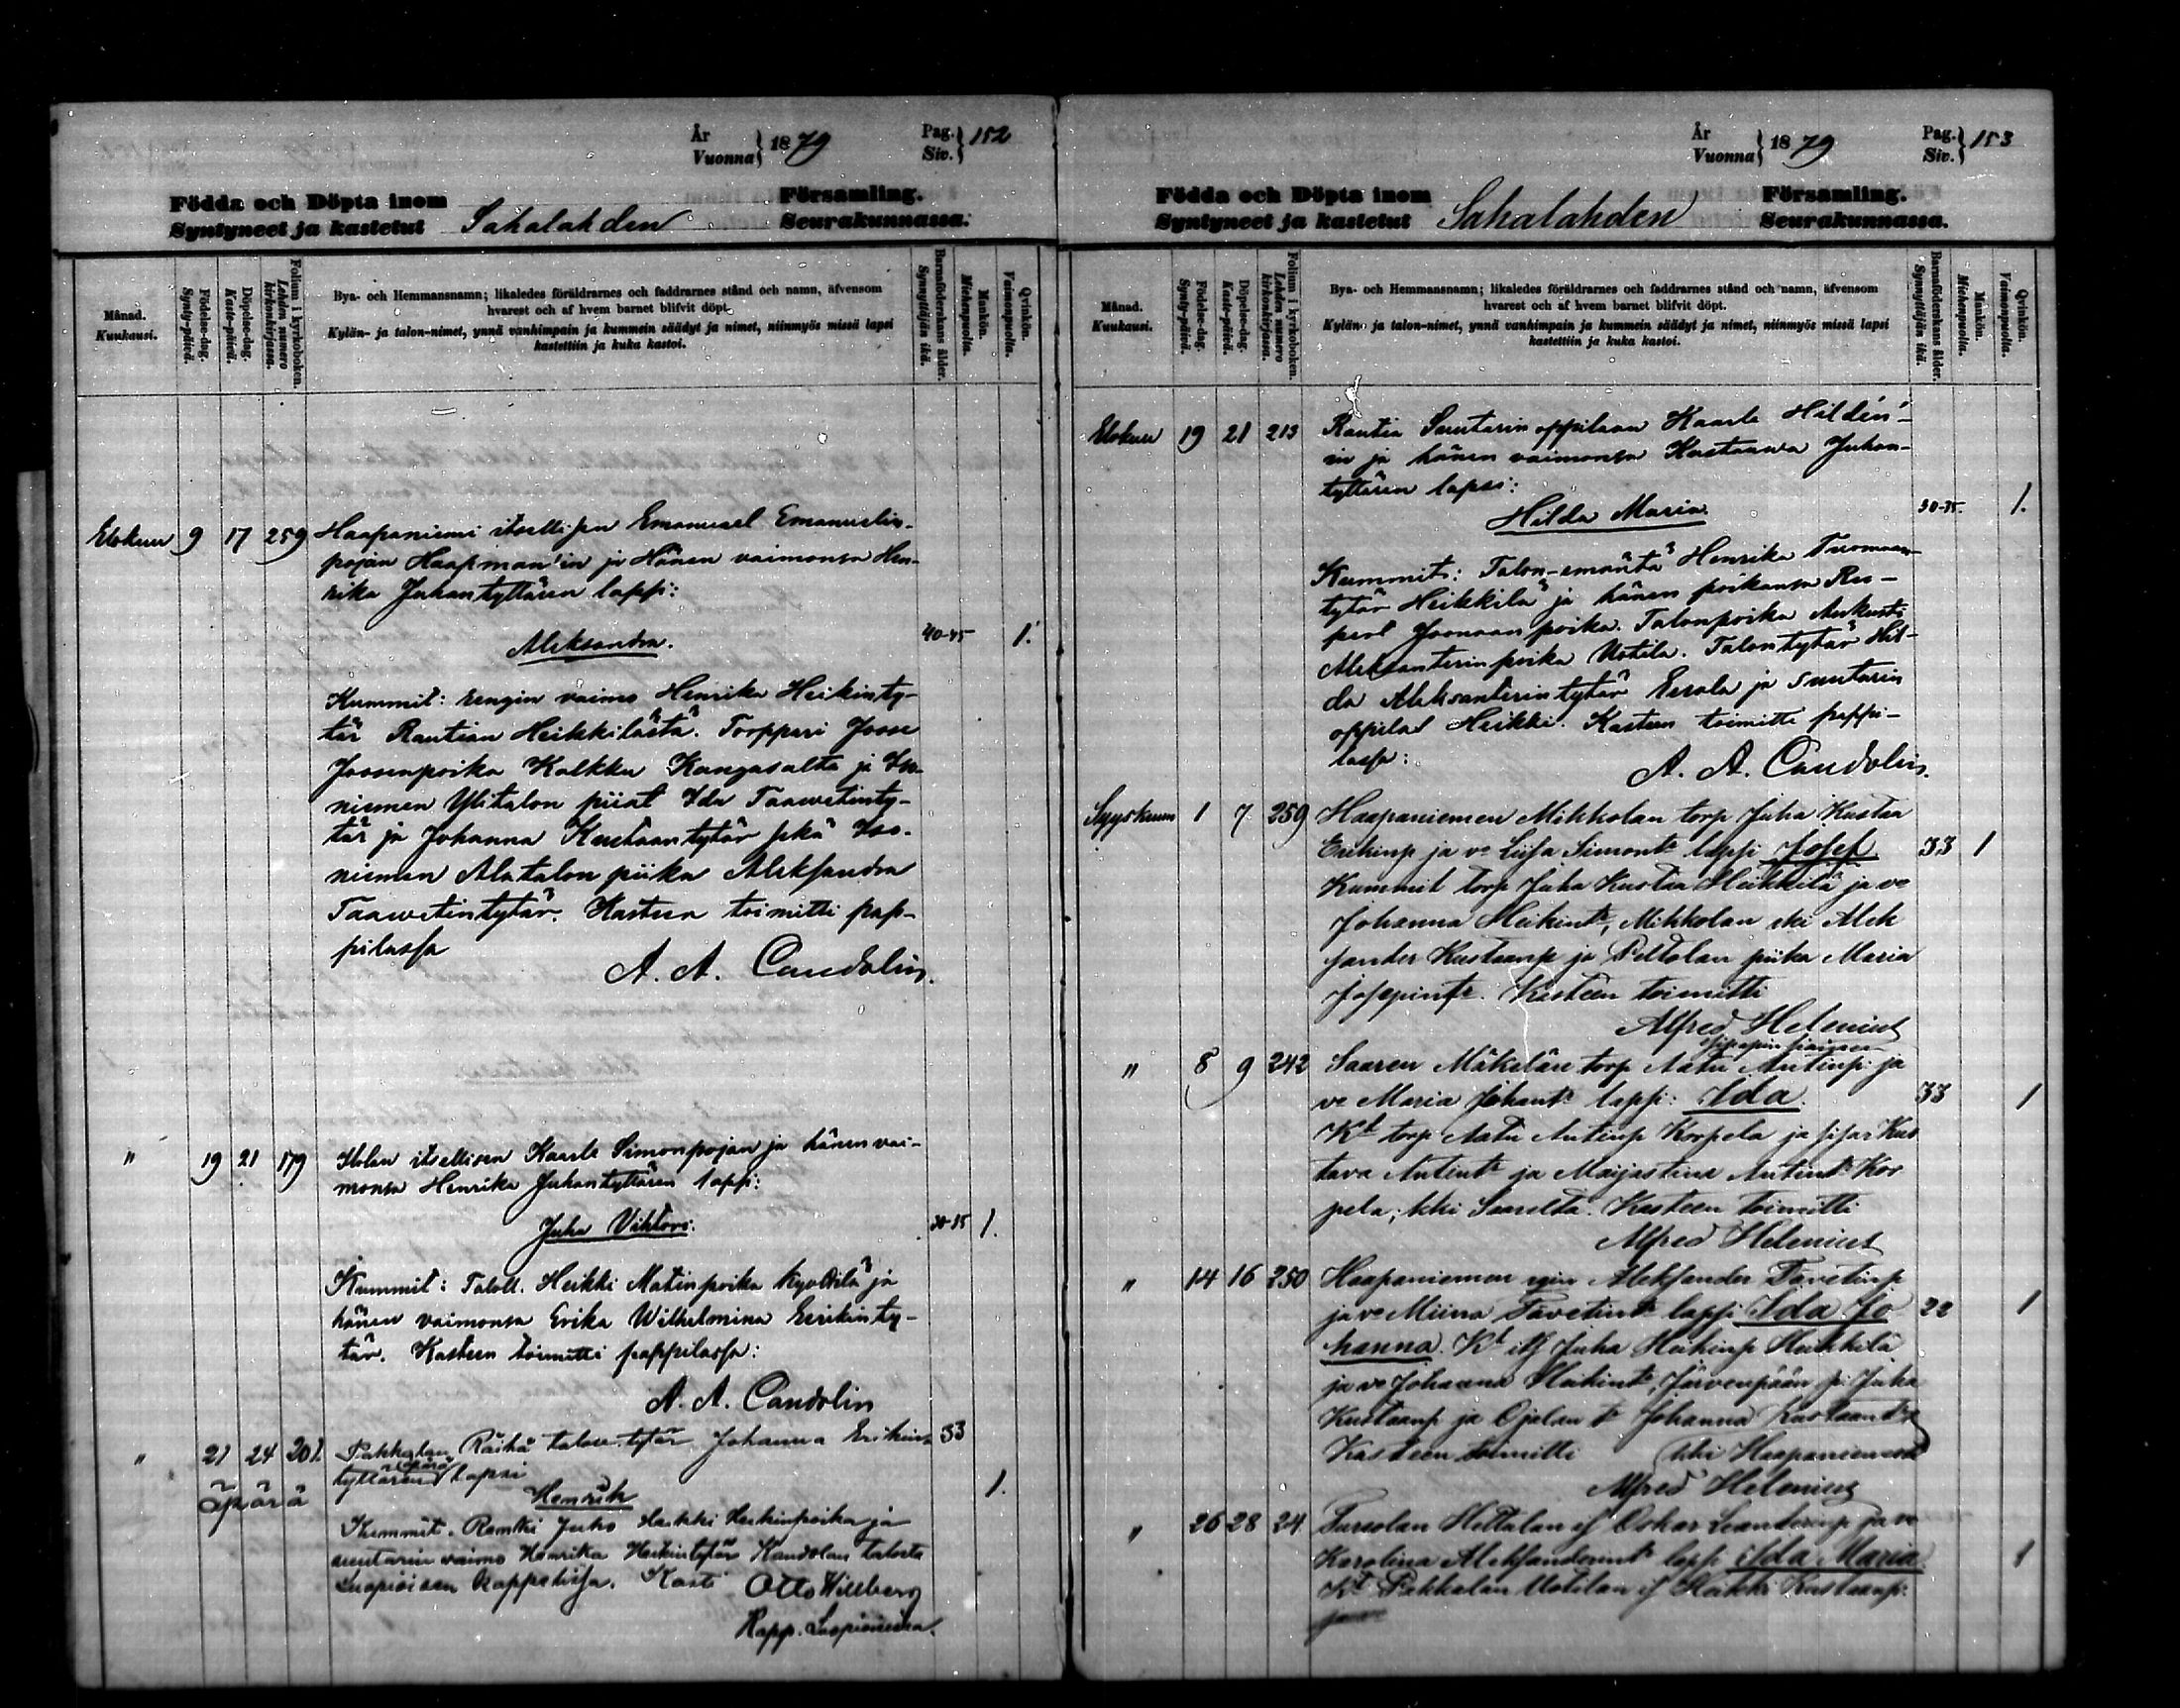 År
Vuonna } 1879
Pag.
Siv. } 152
Födda och Döpta inom Församling.
Syntyneet ja kastetut Sahalahden Seurakunnassa.
Månad.
Kuukausi.
Födelse-dag.
Synty-päivä.
Döpelse-dag.
Kaste-päivä.
Folium i kyrkoboken.
Lehden numero
kirkonkirjassa.
Bya- och Hemmansnamn; likaledes föräldrarnes och faddrarnes stånd och namn, äfvensom
hvarest och af hvem barnet blifvit döpt.
Kylän- ja talon-nimet, ynnä vanhimpain ja kummein säädyt ja nimet, niinmyös missä lapsi
kastettiin ja kuka kastoi.
Barnaföderskans ålder.
Synnyttäjän ikä.
Mankön.
Miehenpuolta.
Qvinkön.
Vaimonpuolta.
Elokuu 9 17 259 Haapaniemi itsellisen Emanuel Emanuelin-
pojan Haapman'in ja Hänen vaimonsa Hen-
rika Juhantyttären lapsi:
Aleksandra. 40-45 1.
Kummit: rengin vaimo Henrika Heikinty-
tär Rautian Heikkilästä. Torppari Joose
Joosenpoika Kalkku Kangasalta ja Iso-
niemen Ylitalon piiat Ida Taawetinty-
tär ja Johanna Kustaantytär sekä Iso-
niemen Alatalon piika Aleksandra
Taawetintytär. Kasteen toimitti pap-
pilassa
A. A. Candolin.
" 19 21 179 itsellisen Kaarle Simonpojan ja hänen vai-
monsa Henrika Juhantyttären lapsi:
Juha Viktori. 30-35 1.
Kummit: Taloll. Heikki Matinpoika ja
hänen vaimonsa Erika Wilhelmina Eerikinty-
tär. Kasteen toimitti pappilassa:
A. A. Candolin
" 21 24 201 Pakkalan Räihä talon tytär Johanna Erikin 33
tyttären äpärä lapsi
äpärä Henrik 1.
Kummit. Juho Heikki Heikinpoika ja
suutarin vaimo Henrika Heikintytär talosta
Kasti Otto Willberg
Kapp.
År
Vuonna } 1879
Pag.
Siv. } 153
Födda och Döpta inom Församling.
Syntyneet ja kastetut Sahalahden Seurakunnassa.
Månad.
Kuukausi.
Födelse-dag.
Synty-päivä.
Döpelse-dag.
Kaste-päivä.
Folium i kyrkoboken.
Lehden numero
kirkonkirjassa.
Bya- och Hemmansnamn; likaledes föräldrarnes och faddrarnes stånd och namn, äfvensom
hvarest och af hvem barnet blifvit döpt.
Kylän- ja talon-nimet, ynnä vanhimpain ja kummein säädyt ja nimet, niinmyös missä lapsi
kastettiin ja kuka kastoi.
Barnaföderskans ålder.
Synnyttäjän ikä.
Mankön.
Miehenpuolta.
Qvinkön.
Vaimonpuolta.
Elokuu 19 21 213 Rautia Suutarin oppilaan Kaarle Hildén'-
in ja hänen vaimonsa Kustaawa Juhan-
tyttären lapsi:
Hilda Maria. 30-35. 1.
Kummit: Talon-emäntä Henrika Tuomaan-
tytär Heikkilä ja hänen poikansa Ru-
pert Joonaanpoika. Talonpoika Aukusti
Aleksanterinpoika Uotila. Talontytär Hil-
da Aleksanterintytär Eerola ja suutarin
oppilas Heikki. Kasteen toimitti pappi-
lassa:
A. A. Candolin.
Syyskuu 1 7 259 Haapaniemen Mikkolan torp Juha Kustaa
Erikinp ja vo Liisa Simont lapsi Josef 33 1
Kummit torp Juha Kustaa Heikkilä ja vo
Johanna Heikint, Mikkolan Alek
sander Kustaanp ja Peltolan piika Maria
Josepint. Kasteen toimitti
Alfred Helenius
" 8 9 242 Saaren Mäkelän torp Matti Antinp ja
vo Maria Johant lapsi: Ida. 33 1
Kt torp Matti Antinp Korpela ja sisar Kus
tava Antint ja Maijastina Antint Kor
pela; kki Saarelta. Kasteen toimitti
Alfred Helenius
" 14 16 250 Haapaniemen rgin Aleksander Tavetinp
ja vo Miina Tavetint lapsi Ida Jo 22 1
hanna. Kt its Juha Heikinp Heikkilä
ja vo Johanna Heikint, Järvenpään Juha
Kustaanp ja Ojalan Johanna Kustaant
Kasteen toimitti kki Haapaniemestä
Alfred Helenius
" 26 28 24 Hettalan Oskar Leanderinp ja vo
Karolina Aleksanderint lapsi Ida Maria 1
Kt Pakkalan Uotilan Heikki Kustaanp.